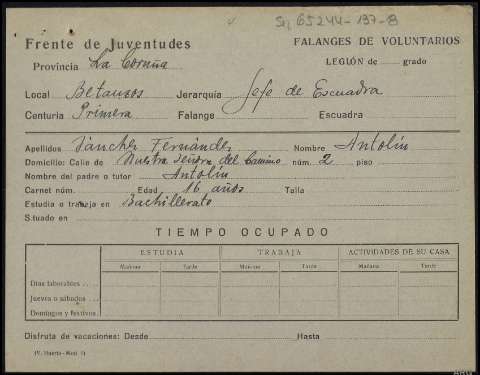 Sig 65244-197-8
Frente de Juventudes FALANGES DE VOLUNTARIOS
Provincia La Coruña LEGIÓN de grado
Local Betanzos Jerarquía Jefe de Escuadra
Centuria Primera Falange Escuadra
Apellidos Sánchez Fernández Nombre Antolín
Domicilio: Calle de Nuestra Señora del Camino núm. 2 piso
Nombre del padre o tutor Antolín
Carnet núm. Edad 16 años Talla
Estudia o trabaja en Bachillerato
Situado en
TIEMPO OCUPADO
ESTUDIA TRABAJA ACTIVIDADES DE SU CASA
Mañana Tarde Mañana Tarde Mañana Tarde
Días laborables
Jueves o sábados
Domingos y festivos
Disfruta de vacaciones: Desde Hasta